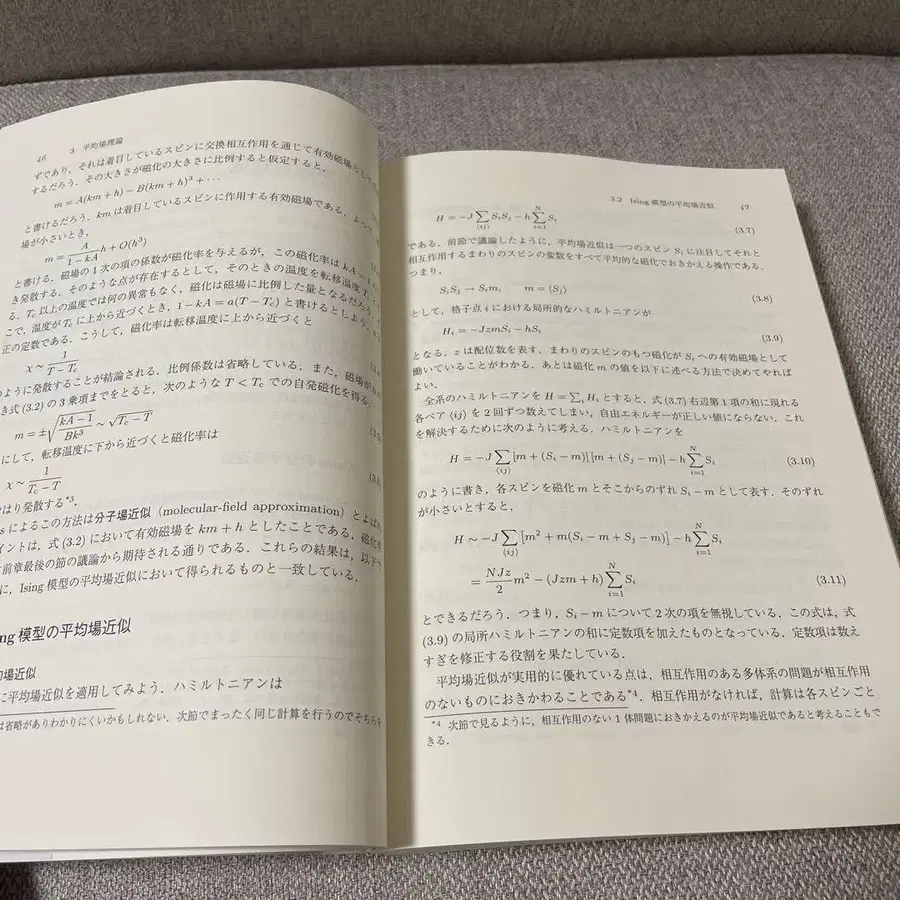 46　3　平均場理論
ずであり，それは着目しているスピンに交換相互作用を通じて有効磁場として
するだろう．その大きさが磁化の大きさに比例すると仮定すると，
m = A(km + h) − B(km + h)³ + ···
と書けるだろう．kmは着目しているスピンに作用する有効磁場である．よって，
場が小さいとき，
m = A/(1 − kA) h + O(h³)
と書ける．磁場の1次の項の係数が磁化率を与えるが，この磁化率は kA =
き発散する．そのような点が存在するとして，そのときの温度を転移温度
る．Tc 以上の温度では何の異常もなく，磁化は磁場に比例した量となるだろう．
こで，温度が Tc に上から近づくとき，1 − kA = a(T − Tc) と書けるとしよう．
正の定数である．こうして，磁化率は転移温度に上から近づくと
χ ∼ 1/(T − Tc)
のように発散することが結論される．比例係数は省略している．また，磁場が
き式 (3.2) の3乗項までをとると，次のような T < Tc での自発磁化を得る．
m = ±√((kA − 1)/(Bk³)) ∼ √(Tc − T)
にして，転移温度に下から近づくと磁化率は
χ ∼ 1/(Tc − T)
はり発散する*³．
s によるこの方法は分子場近似（molecular-field approximation）とよばれ
イントは，式 (3.2) において有効磁場を km + h としたことである．磁化率
前章最後の節の議論から期待される通りである．これらの結果は，以下で
に，Ising 模型の平均場近似において得られるものと一致している．
ng 模型の平均場近似
均場近似
に平均場近似を適用してみよう．ハミルトニアンは
は省略がありわかりにくいかもしれない．次節でまったく同じ計算を行うのでそちらを
3.2　Ising 模型の平均場近似　47
H = −J ∑⟨ij⟩ SiSj − h ∑_{i=1}^{N} Si　(3.7)
である．前節で議論したように，平均場近似は一つのスピン Si に注目してそれと
相互作用するまわりのスピンの変数をすべて平均的な磁化でおきかえる操作である．
つまり，
SiSj → Sim,　m = ⟨Sj⟩　(3.8)
として，格子点 i における局所的なハミルトニアンが
Hi = −JzmSi − hSi　(3.9)
となる．z は配位数を表す．まわりのスピンのもつ磁化が Si への有効磁場として
働いていることがわかる．あとは磁化 m の値を以下に述べる方法で決めてやれば
よい．
全系のハミルトニアンを H = ∑i Hi とすると，式 (3.7) 右辺第1項の和に現れる
各ペア ⟨ij⟩ を2回ずつ数えてしまい，自由エネルギーが正しい値にならない．これ
を解決するために次のように考える．ハミルトニアンを
H = −J ∑⟨ij⟩ [m + (Si − m)][m + (Sj − m)] − h ∑_{i=1}^{N} Si　(3.10)
のように書き，各スピンを磁化 m とそこからのずれ Si − m として表す．そのずれ
が小さいとすると，
H ∼ −J ∑⟨ij⟩ [m² + m(Si − m + Sj − m)] − h ∑_{i=1}^{N} Si
= NJz/2 m² − (Jzm + h) ∑_{i=1}^{N} Si　(3.11)
とできるだろう．つまり，Si − m について2次の項を無視している．この式は，式
(3.9) の局所ハミルトニアンの和に定数項を加えたものとなっている．定数項は数え
すぎを修正する役割を果たしている．
平均場近似が実用的に優れている点は，相互作用のある多体系の問題が相互作用
のないものにおきかわることである*⁴．相互作用がなければ，計算は各スピンごと
*4　次節で見るように，相互作用のない1体問題におきかえるのが平均場近似であると考えることもで
きる．